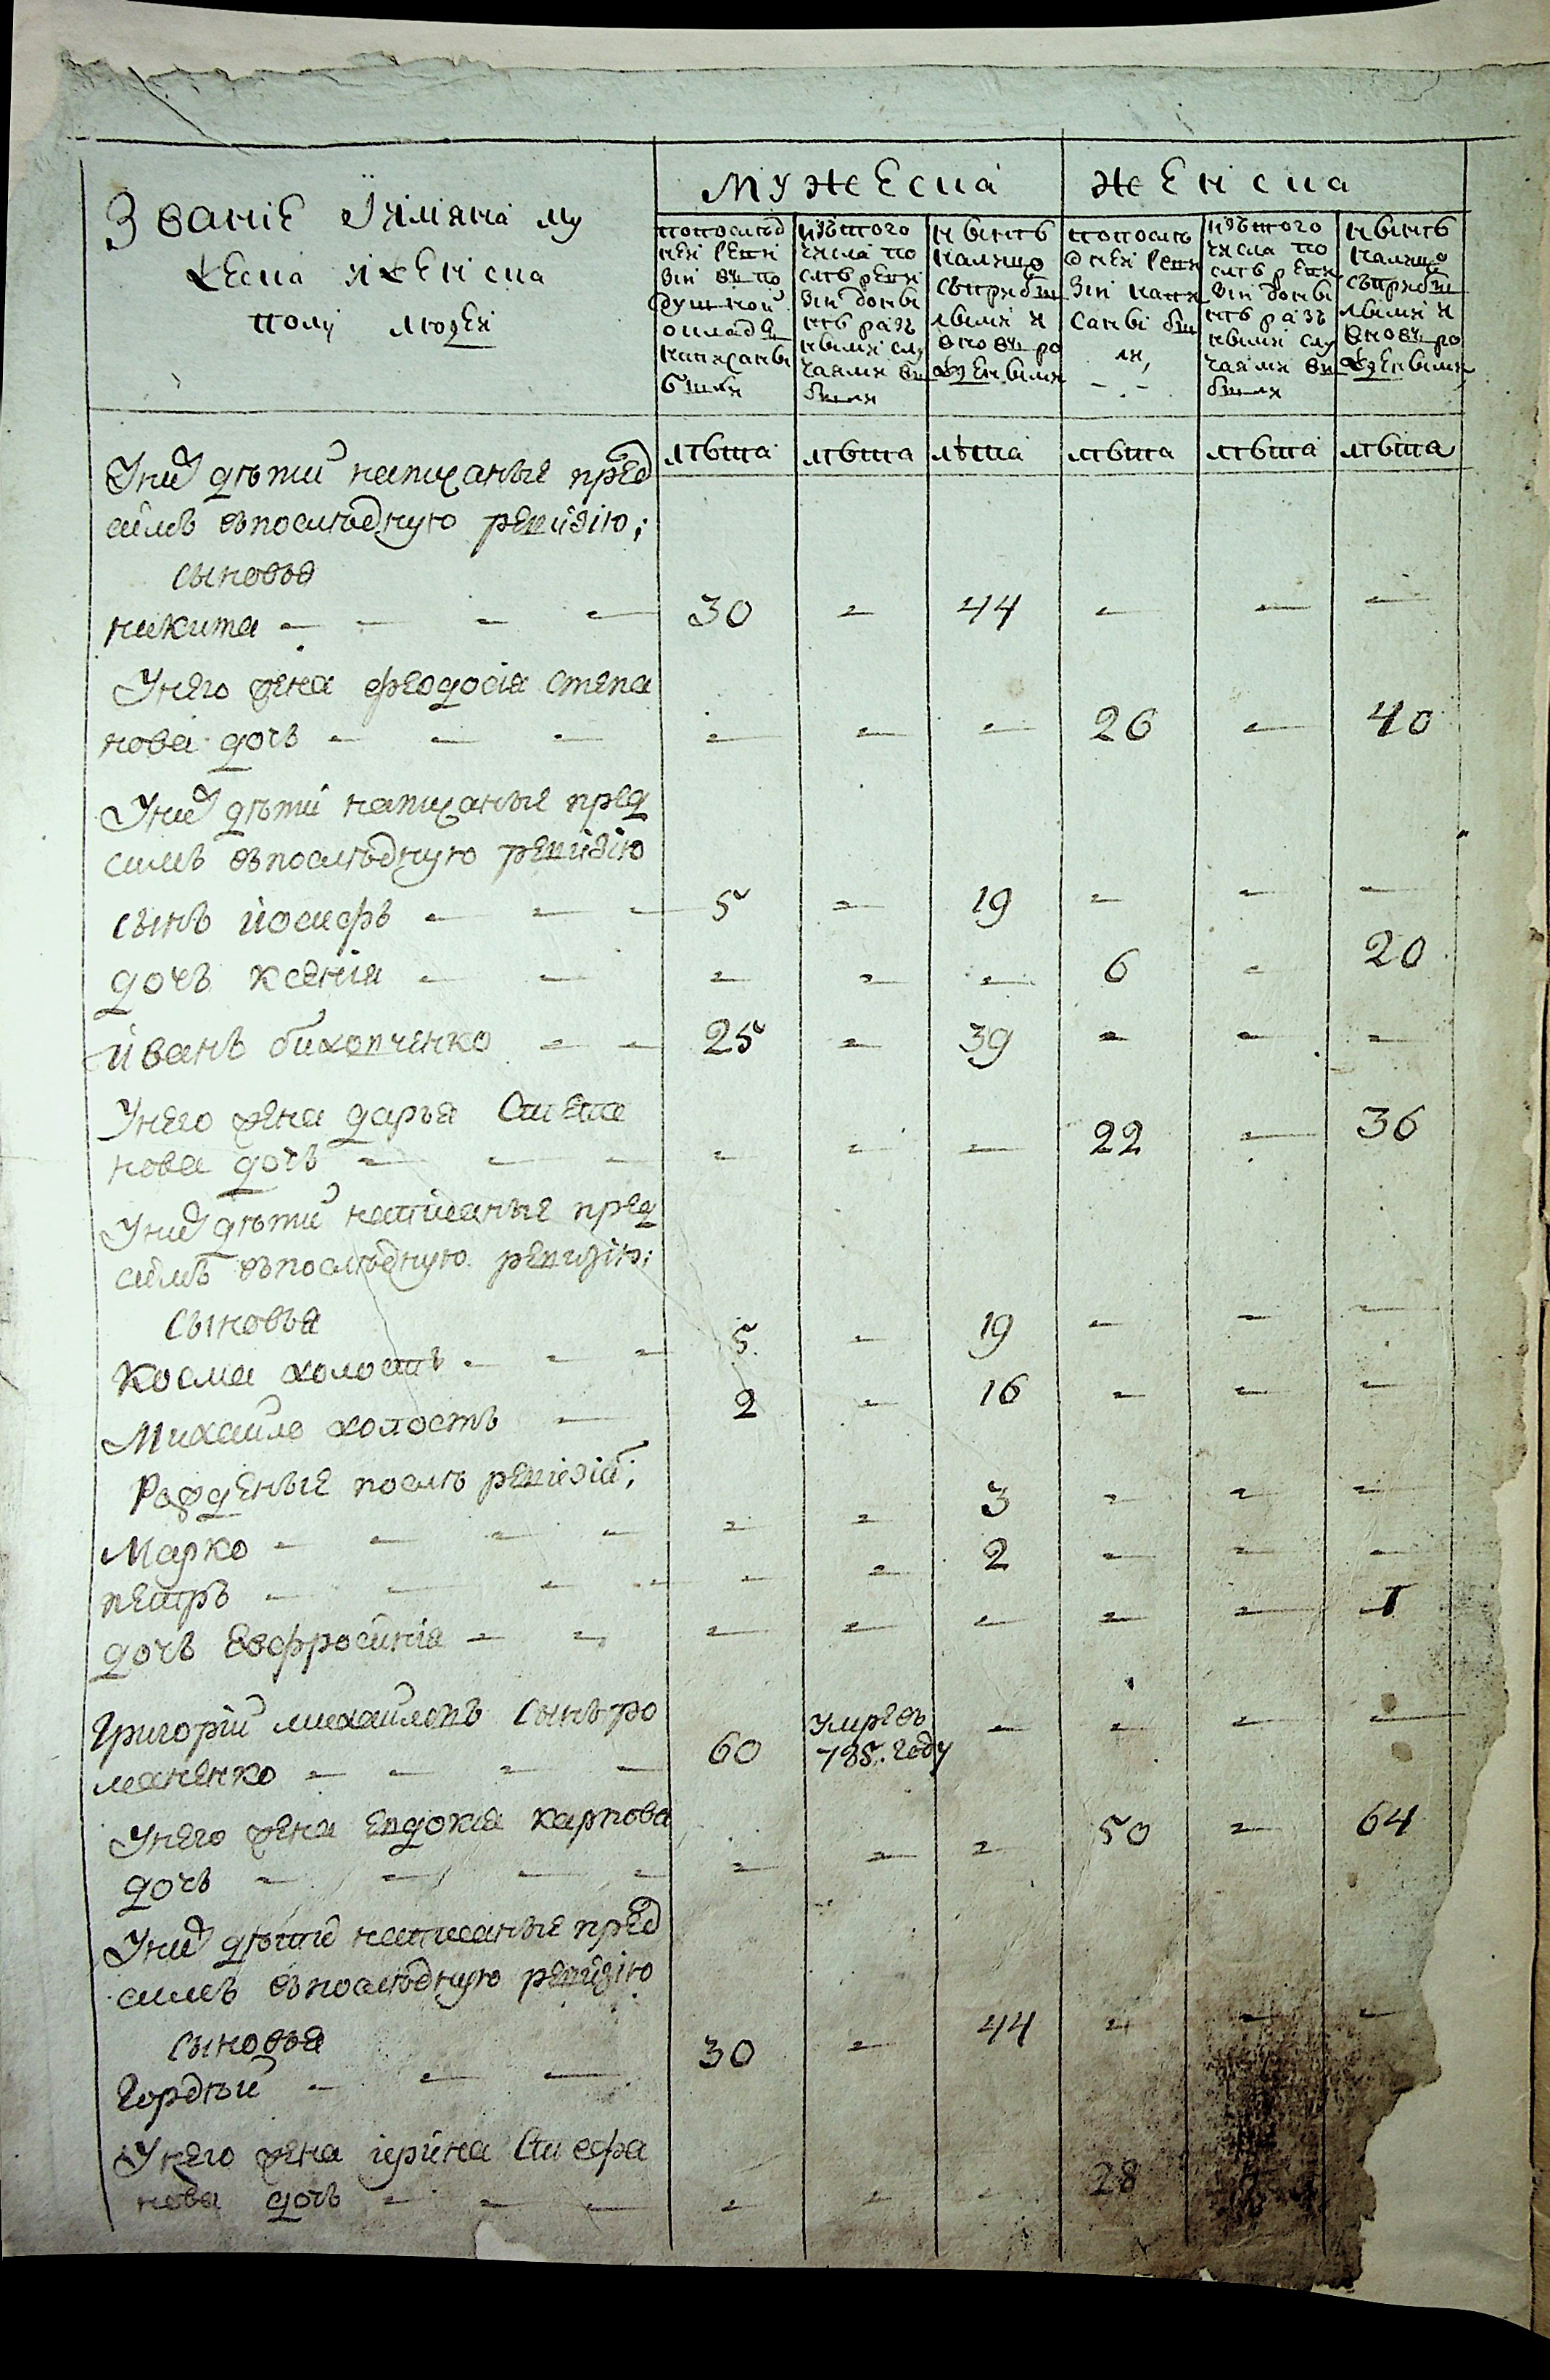 Званіе Иимяна му
жеска иженска
полу людей
мужеска
женска
попослѣд
ней реви
зіи въ по
душной
окладъ
написаны
были
изътого
числа по
слѣ реви
зіи доны
нѣ разъ
ными слу
чаями вы
были
нынѣ
налицо
съприбы
лыми и
вновъ ро
ждеными
попослѣ
дней реви
зіи напи
саны бы
ли,
изътого
числа по
слѣ реви
зіи доны
нѣ разъ
ными слу
чаями вы
были
нынѣ
налицо
съприбы
лыми и
вновъ ро
ждеными
лѣта лѣта лѣта лѣта лѣта лѣта
Унихъ дѣти написаные пред
симъ впоследную ревизію;
сыновья
никита - - - - 30 - 44 - - -
Унего жена феодосія степа
нова дочь - - - - - - 26 - 40
Унихъ дѣти написаные пред
симъ впослѣдную ревизію
сынъ иосифъ - - - 5 - 19 - - -
дочь ксенія - - - - - 6 - 20
иванъ бихопченко - - 25 - 39 - - -
Унего жена дарья Степа
нова дочь - - - - - - 22 - 36
Унихъ дѣти написаные пред
симъ впослѣдную ревизію;
Сыновья
Косма холостъ - - - 5 - 19 - - -
Михаило холостъ - 2 - 16 - - -
Рожденые послѣ ревизіи;
Марко - - - - - - 3 - - -
петръ - - - - - - 2 - - -
дочь Евфросинія - - - - - - - 1
Григорій михайловъ Сынъ ро
маненко - - - - 60 умре въ 785. году - - - -
Унего жена евдокія карпова
дочь - - - - - - - 50 - 64
Унихъ дѣти написаные пред
симъ впослѣдную ревизію
Сыновья
Гордѣй - - - 30 - 44 - - -
Унего жена ірина Стефа
нова дочь - - - - - - 28